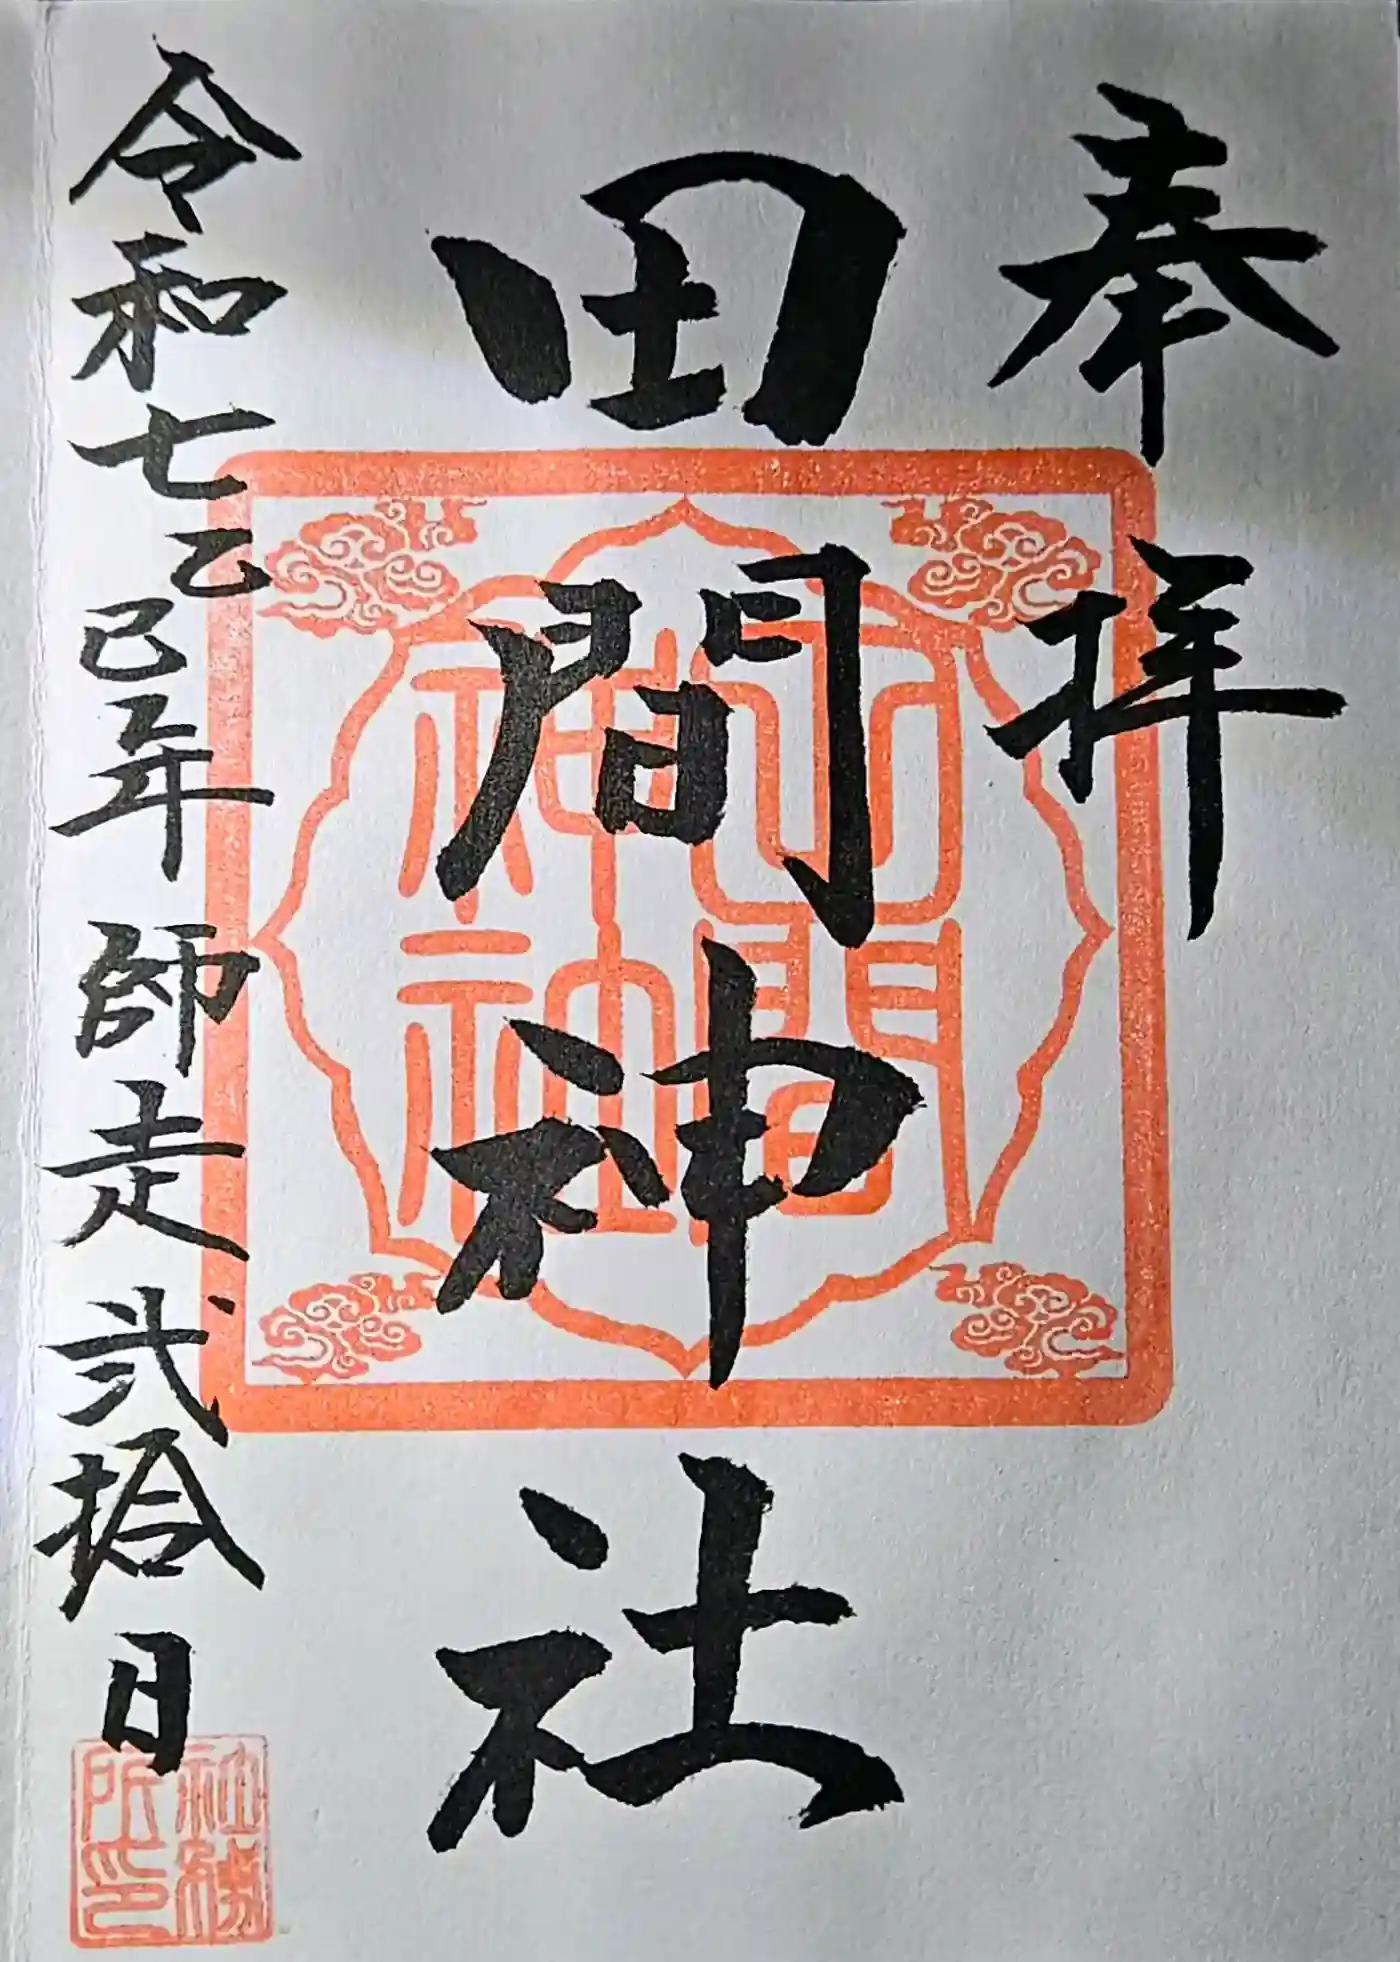 奉拝
田間神社
田間神社
令和七乙巳年 師走 弐拾日
社務所印